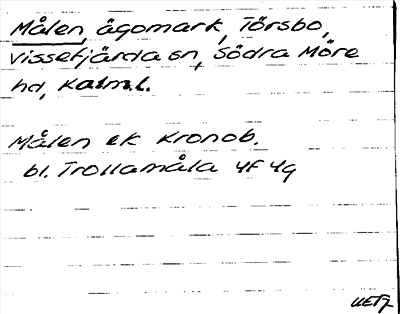 Målen, ägomark, Törsbo,
Vissefjärda sn, Södra Möre
hd, Kalm.l.
Målen ek Kronob.
bl. Trollamåla 4F 4g